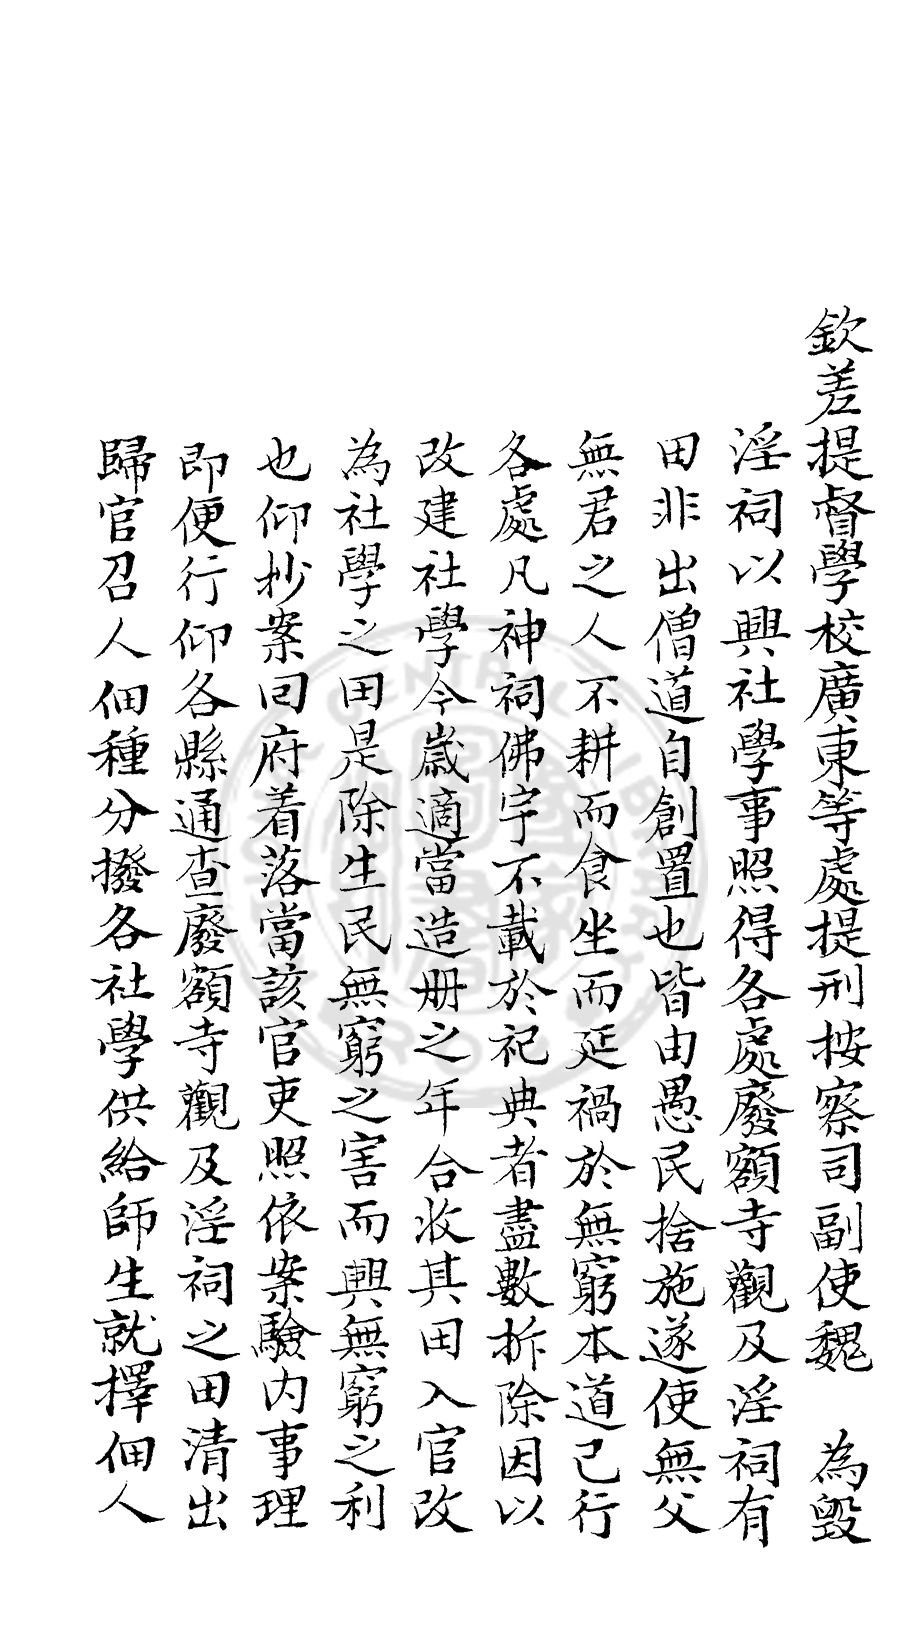 欽差提督學校廣東等處提刑按察司副使魏　為毀
淫祠以興社學事照得各處廢額寺觀及淫祠有
田非出僧道自創置也皆由愚民捨施遂使無父
無君之人不耕而食坐而延禍於無窮本道已行
各處凡神祠佛宇不載於祀典者盡數拆除因以
改建社學今歲適當造册之年合收其田入官改
為社學之田是除生民無窮之害而興無窮之利
也仰抄案回府着落當該官吏照依案驗内事理
即便行仰各縣通查廢額寺觀及淫祠之田清出
歸官召人佃種分撥各社學供給師生就擇佃人